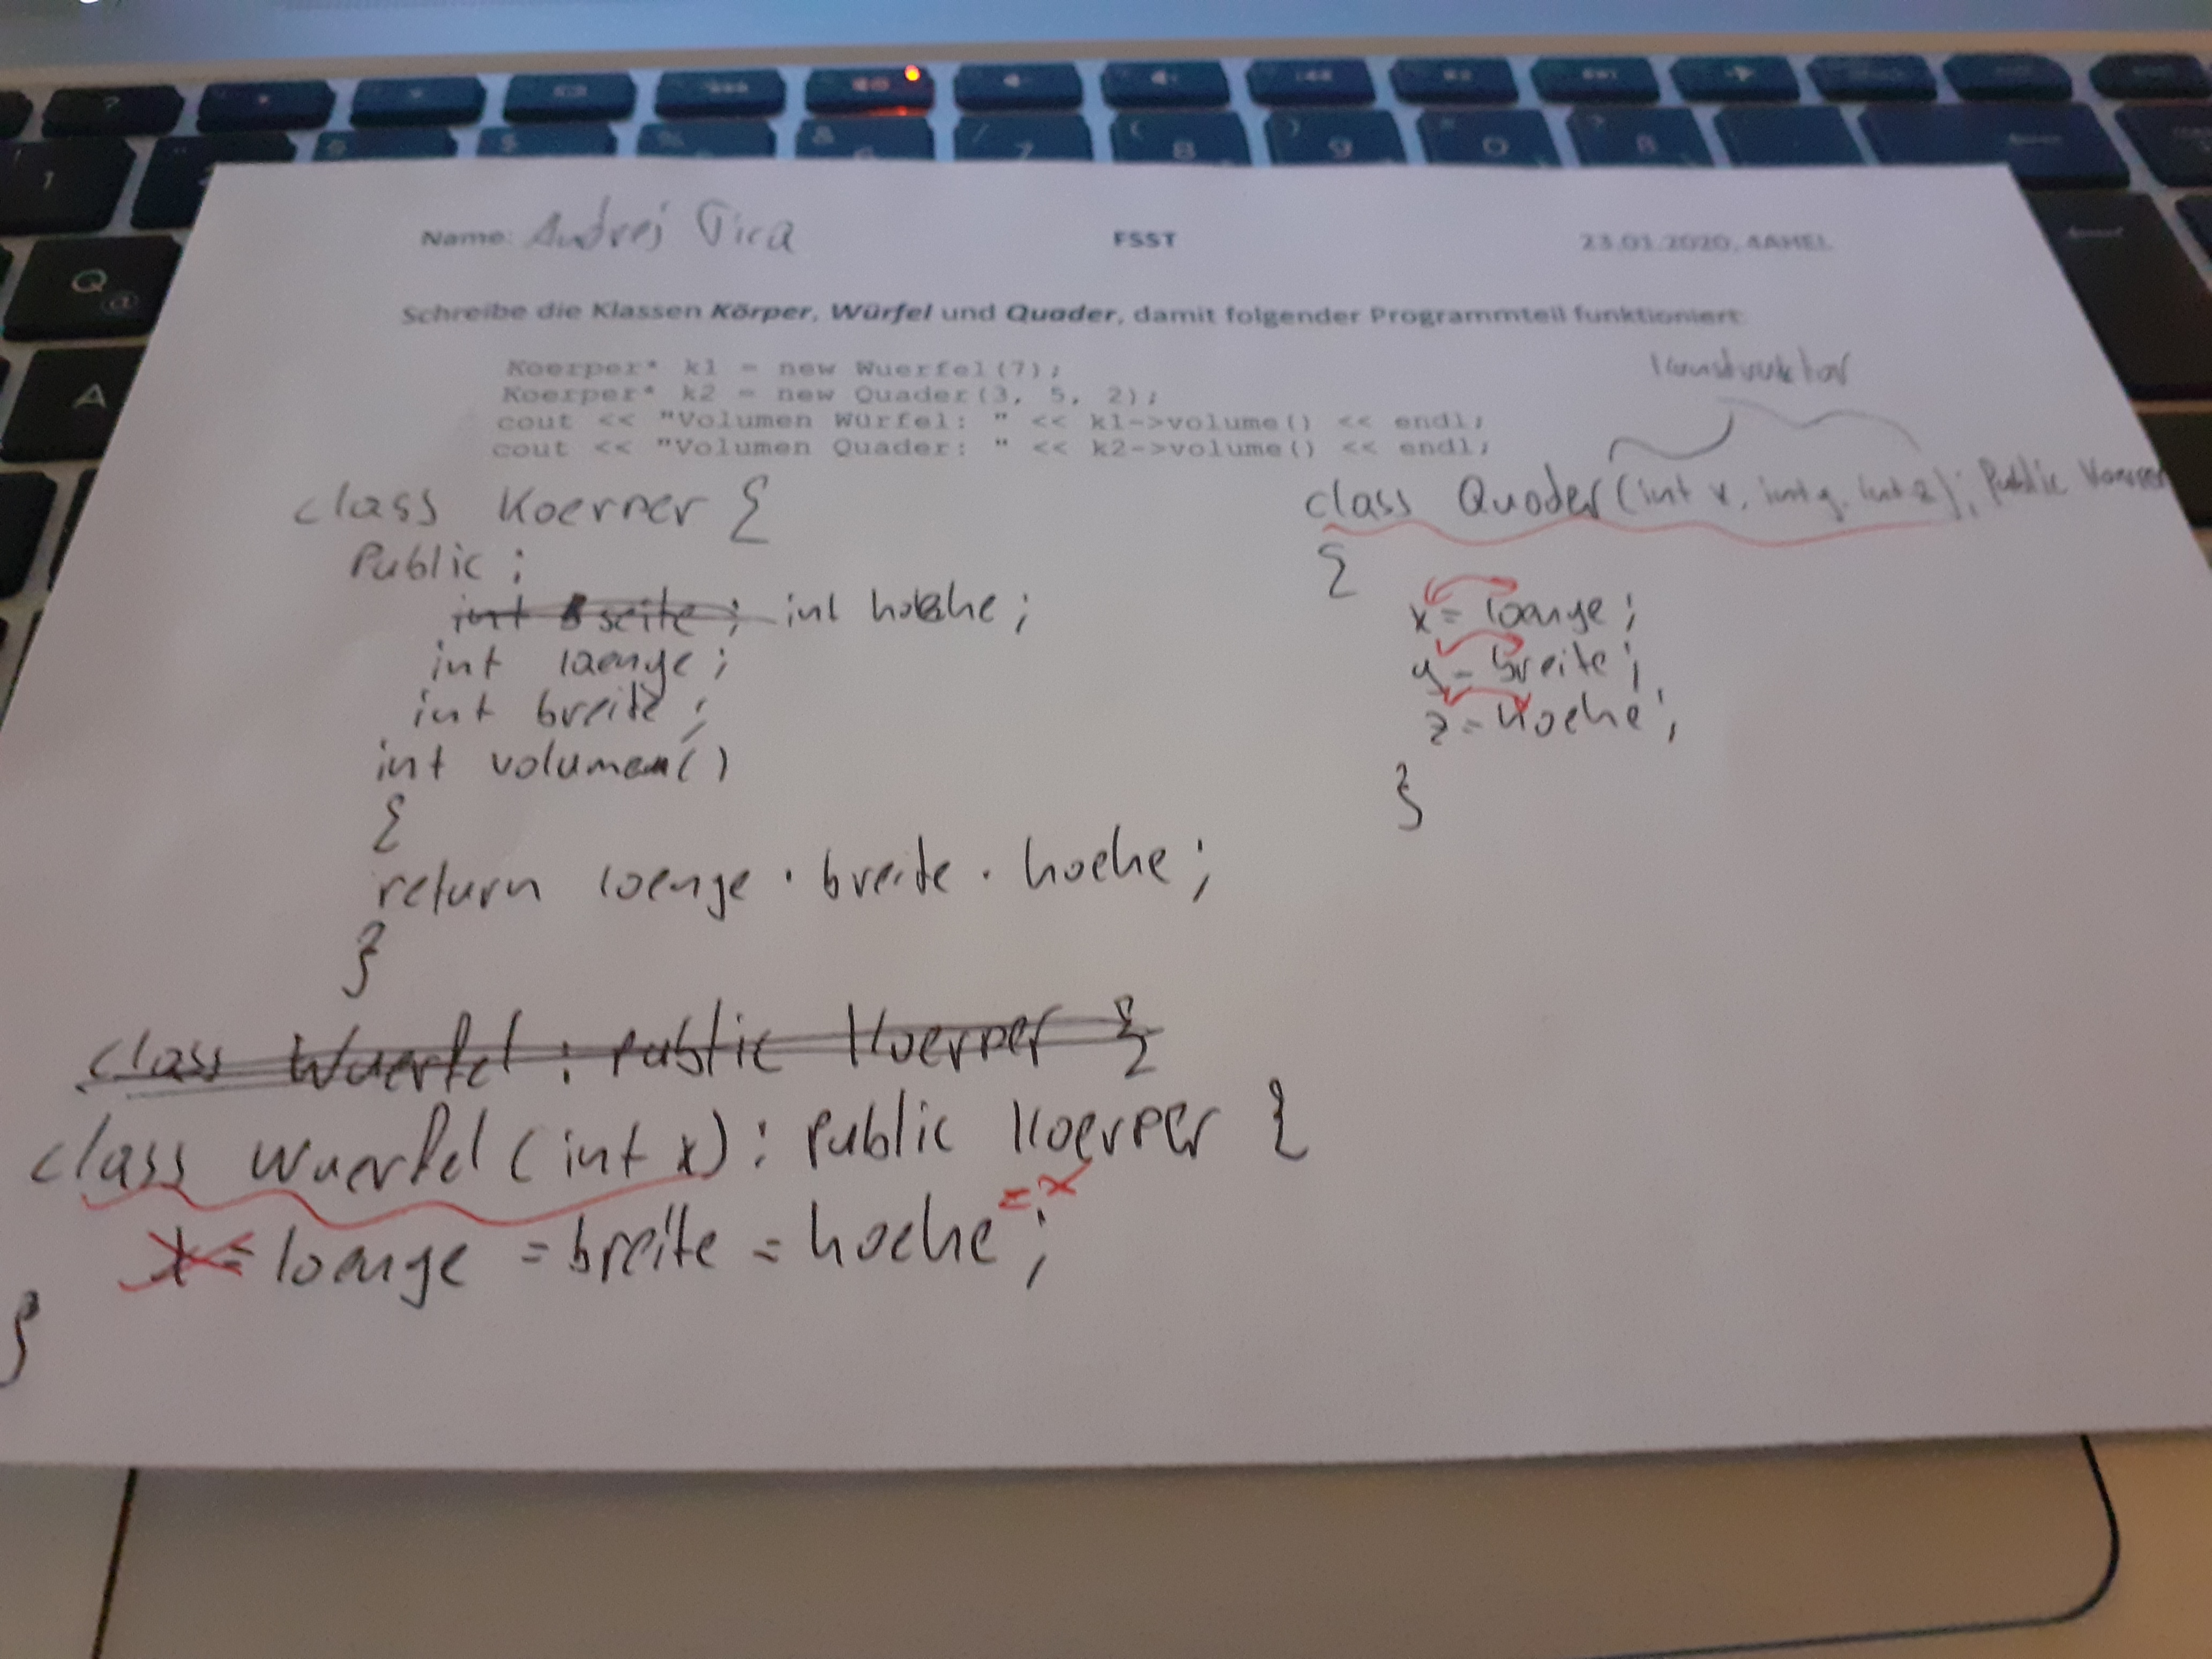 Name: Andrej FSST 23.01.2020, 4AHEL
Schreibe die Klassen Körper, Würfel und Quader, damit folgender Programmteil funktioniert:
Koerper* k1 = new Wuerfel(7);
Koerper* k2 = new Quader(3, 5, 2);
cout << "Volumen Würfel: " << k1->volume() << endl;
cout << "Volumen Quader: " << k2->volume() << endl;
Konstruktor
class Koerper {
Public:
int seite; int hoehe;
int laenge;
int breite;
int volumen()
{
return laenge · breite · hoehe;
}
class Wuerfel : public Koerper {
class Wuerfel (int x) : public Koerper {
x = laenge = breite = hoehe = x;
}
class Quader (int x, int y, int z); Public Koerper
{
x = laenge;
y = breite;
z = hoehe;
}